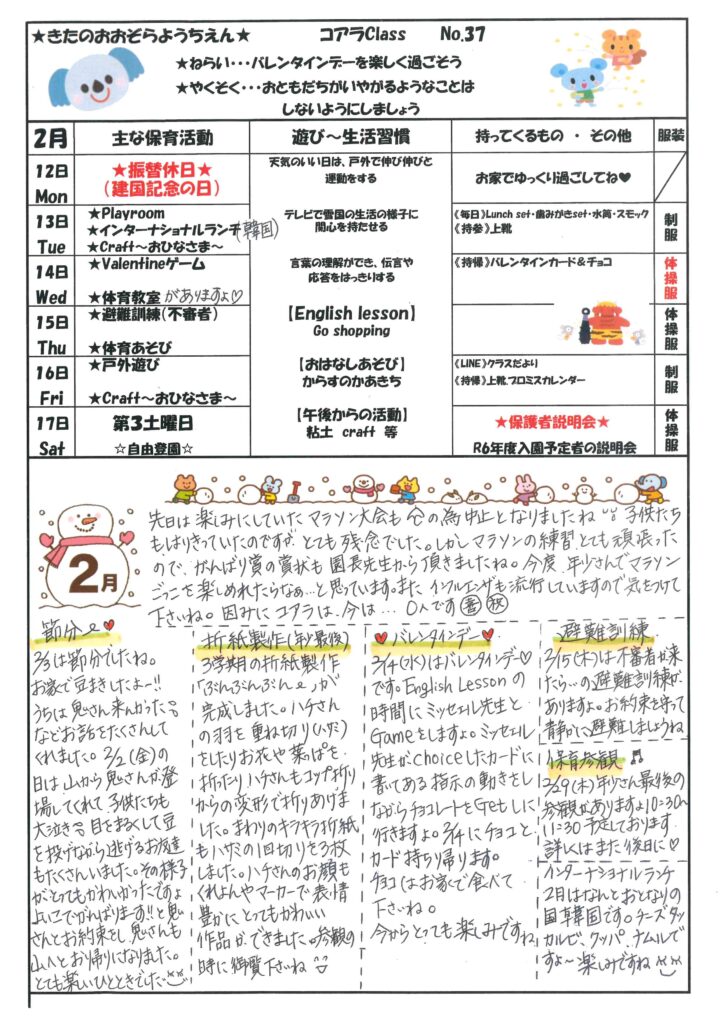 ★きたのおおぞらようちえん★ コアラClass No.37
★ねらい・・・バレンタインデーを楽しく過ごそう
★やくそく・・・おともだちがいやがるようなことは
しないようにしましょう
2月 主な保育活動 遊び～生活習慣 持ってくるもの ・ その他 服装
12日 Mon
★振替休日★
(建国記念の日)
天気のいい日は、戸外で伸び伸びと
運動をする
お家でゆっくり過ごしてね♥
13日 Tue
★Playroom
★インターナショナルランチ(韓国)
★Craft～おひなさま～
テレビで雪国の生活の様子に
関心を持たせる
《毎日》Lunch set・歯みがきset・水筒・スモック
《持参》上靴
制服
14日 Wed
★Valentineゲーム
★体育教室 がありますよ♡
言葉の理解ができ、伝言や
応答をはっきりする
《持帰》バレンタインカード＆チョコ
体操服
15日 Thu
★避難訓練(不審者)
★体育あそび
【English lesson】
Go shopping
体操服
16日 Fri
★戸外遊び
★Craft～おひなさま～
【おはなしあそび】
からすのかあきち
《LINE》クラスだより
《持帰》上靴.プロミスカレンダー
制服
17日 Sat
第3土曜日
☆自由登園☆
【午後からの活動】
粘土 craft 等
★保護者説明会★
R6年度入園予定者の説明会
体操服
2月
先日は楽しみにしていたマラソン大会も の為中止となりましたね 子供たち
もはりきっていたのですが とても残念でした。しかしマラソンの練習とても頑張った
ので、がんばり賞の賞状も園長先生から頂きましたね。今度、年少さんでマラソン
ごっこを楽しめれたらなぁ…と思っています。また インフルエンザも流行していますので気をつけて
下さいね。因みにコアラは、今は… 0人です
節分
2/3は節分でしたね。
お家で豆まきしたよー!!
うちは鬼さん来んかった
などお話をたくさんして
くれました。2/2(金)の
日は山から鬼さんが登
場してくれて 子供たちも
大泣き 目をまるくして豆
を投げながら逃げるお友達
もたくさんいました。その様子
がとってもかわいかったですよ
よい子でがんばります!!と鬼
さんとお約束をし、鬼さんも
山へとお帰りになりました。
とても楽しいひとときでした
折紙製作(年少最後)
3学期の折紙製作
「ぶんぶんぶん」が
完成しました。ハチさん
の羽を重ね切り(ハサミ)
をしたりお花や葉っぱを
折ったり ハチさんもコップ折り
からの変形で折りあげま
した。まわりのキラキラ折紙
もハサミの1回切りを3枚
しました。ハチさんのお顔も
くれよんやマーカーで表情
豊かに とってもかわいい
作品ができました。参観の
時に御覧下さいね
♥バレンタインデー♥
2/14(水)はバレンタインデー♡
です。English Lessonの
時間にミッセェル先生と
Gameをしますよ。ミッセェル
先生がchoiceしたカードに
書いてある指示の動きをし
ながらチョコレートをGetしに
行きますよ。2/14にチョコと
カード持ち帰ります。
チョコはお家で食べて
下さいね。
今からとっても楽しみですね
避難訓練
2/15(木)は不審者が来
たら…の避難訓練が
ありますよ。お約束を守って
静かに避難しましょうね
保育参観♬
2/29(木)年少さん最後の
参観がありますよ10:30～
11:30予定しております
詳しくはまた後日に♡
インターナショナルランチ
2月はなんとおとなりの
国韓国です。チーズタッ
カルビ、クッパ、ナムルで
すよ～楽しみですね